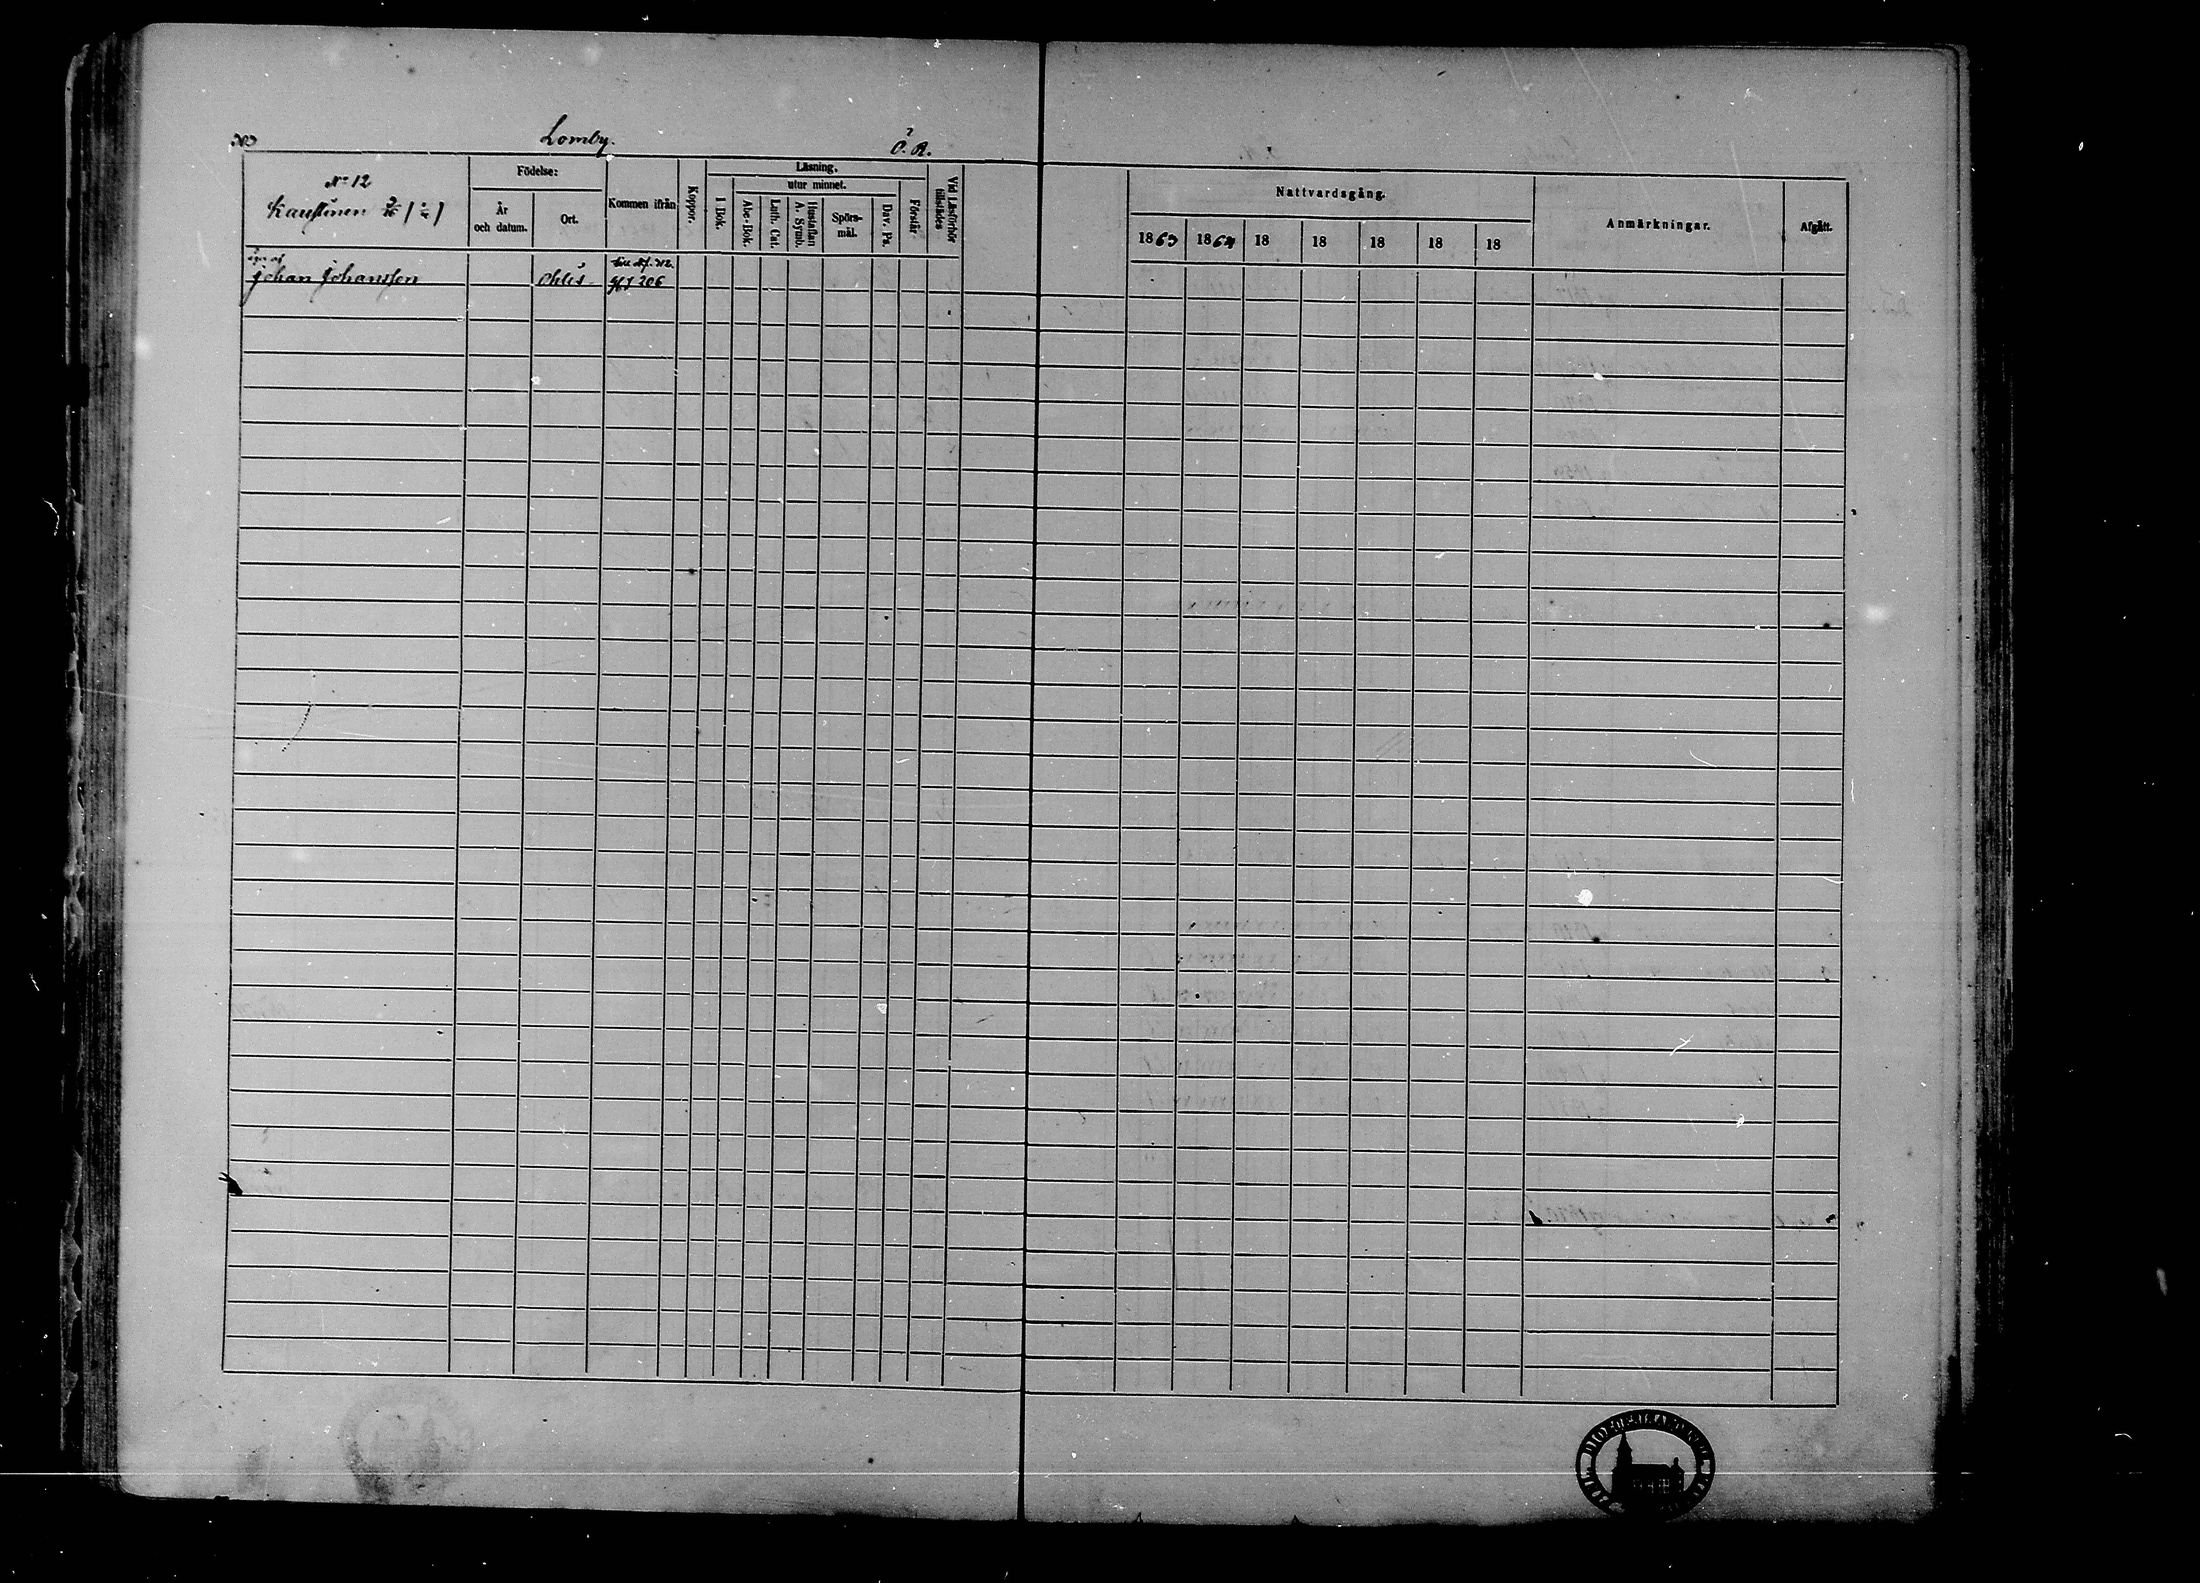 303 Lomby. Ö. R.
No 12
Kaustinen
Födelse: Kommen ifrån Koppor. Läsning, Förstår Vid Läsförhör tillstädes
År och datum. Ort. I Bok. utur minnet. Abc-Bok. Luth. Cat. Hustaflan A. Symb. Spörsmål. Dav. Ps.
Nattvardsgång. Anmärkningar. Afgått.
1863 1864 18 18 18 18 18
äges af
Johan Johansson 206